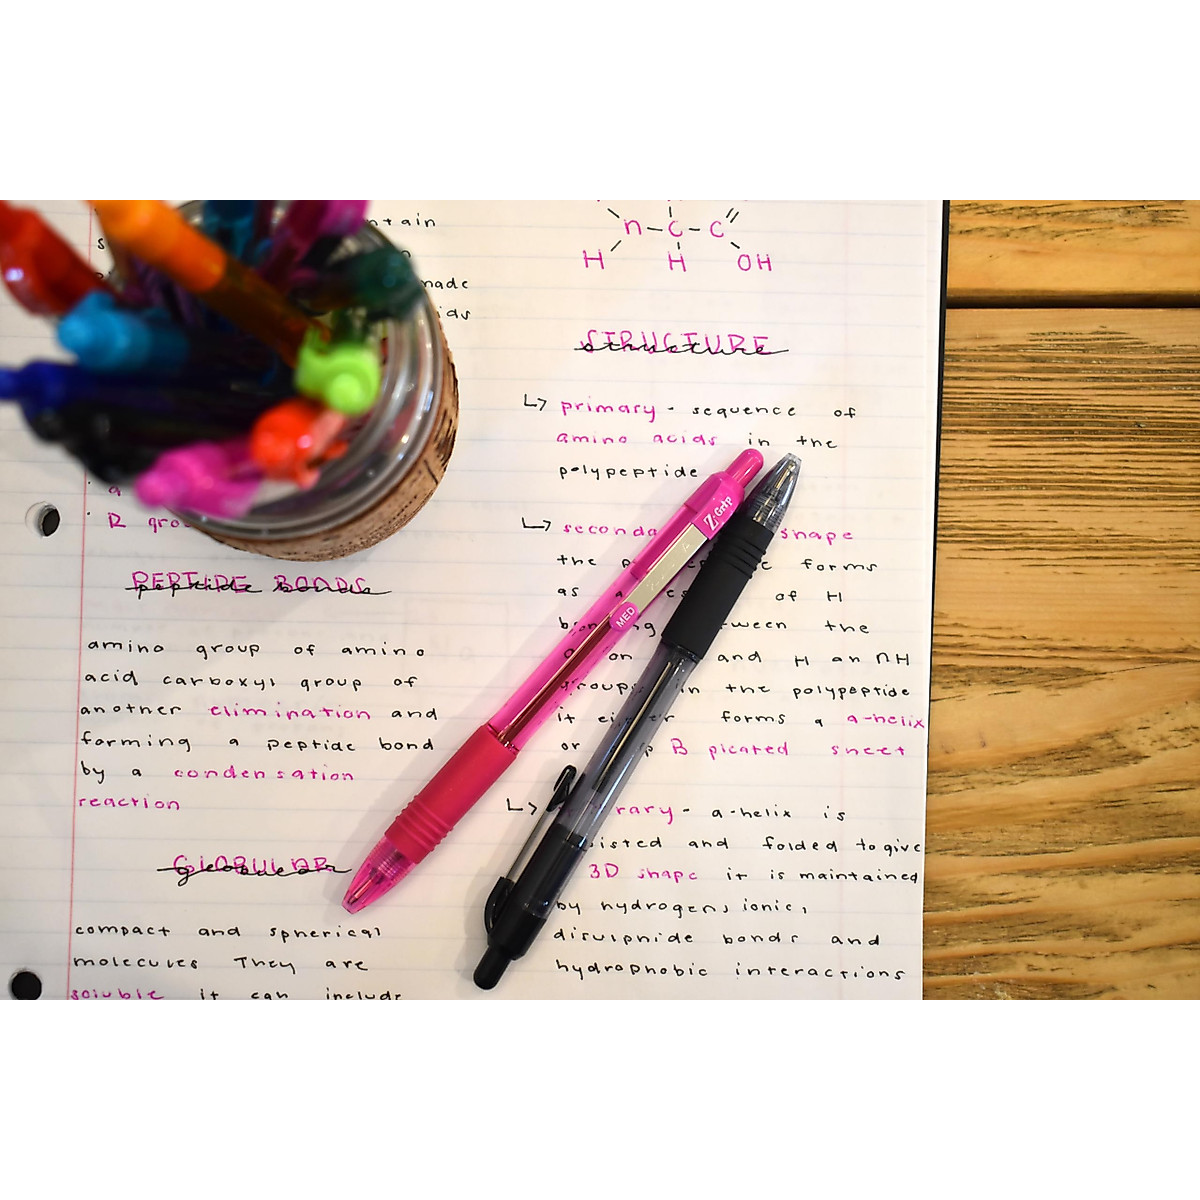 ntain
s
made
ids
a
R gro
PEPTIDE BONDS
peptide bonds
amino group of amino
acid carboxyl group of
another elimination and
forming a peptide bond
by a condensation
reaction
GLOBULAR
globular
compact and spherical
molecules They are
soluble it can include
n-C-C
H H OH
STRUCTURE
structure
↳ primary - sequence of
amino acids in the
polypeptide
↳ seconda shape
the p forms
as a of H
ween the
on and H an NH
groups in the polypeptide
it either forms a a-helix
or B plcated sheet
↳ rary - a-helix is
isted and folded to give
3D shape it is maintained
by hydrogens ionic,
disulphide bonds and
hydrophobic interactions
Z Grip
MED